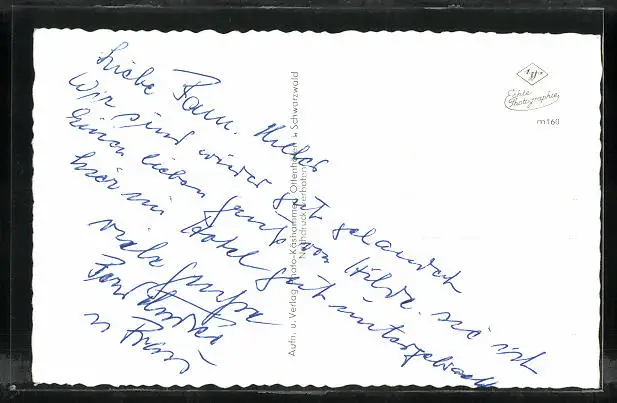 Liebe Fam. Keller
Wir sind wieder gut gelandet
Einen lieben Gruß von Hilde. sie ist
hier im Hotel gut untergebracht
viele Grüße
u Frau
Aufn. u. Verlag Photo-Kästhammer, Ottenhöfen i. Schwarzwald
Nachdruck verboten
Agfa
Echte
Photographie
m160